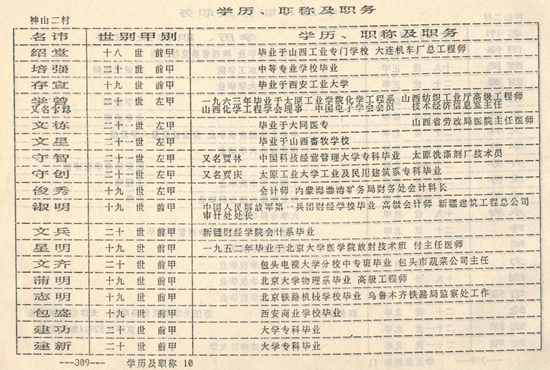 神山二村
学历、职称及职务
名讳 世别甲别 学历、职称及职务
绍堂 十八世前甲 毕业于山西工业专门学校 大连机车厂总工程师
培强 二十世前甲 中等专业学校毕业
存宜 十九世前甲 毕业于西安工业大学
学曾 二十世左甲 一九六二年毕业于太原工业学院化学工程系 山西纺织工业厅高级工程师
又名 山西化学工程学会理事 中国电子学会会员 技术经济信息室主任
文栋 二十世左甲 毕业于大同医专 山西省劳改局医院主任医师
文星 二十世左甲 毕业于山西畜牧学校
守智 二十世左甲 又名贾林 中国科技经营管理大学专科毕业 太原洗涤剂厂技术员
守创 二十世左甲 又名贾庆 太原工业大学工业及民用建筑系专科毕业
俊秀 十九世左甲 会计师 内蒙海渤湾矿务局财务处会计科长
淑明 十九世前甲 中国人民解放军第一兵团财经学校毕业 高级会计师 新疆建筑工程总公司
审计处处长
文兵 二十世前甲 新疆财经学院会计系毕业
星明 十九世前甲 一九五二年毕业于北京大学医学院放射技术班 付主任医师
文齐 二十世前甲 包头电视大学分校中专班毕业 包头市蔬菜公司主任
蒲明 十九世前甲 北京大学物理系毕业 高级工程师
志明 十九世前甲 北京铁路机械学校毕业 乌鲁木齐铁路局监察处工作
包盛 十九世前甲 西安商业学校毕业
建功 二十世前甲 大学专科毕业
建新 二十世前甲 大学专科毕业
—309— 学历及职称 10